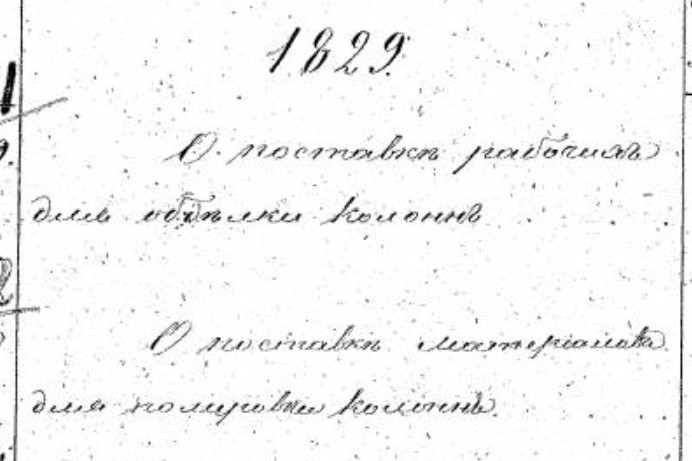 1829
О поставкѣ рабочихъ
для обдѣлки колоннъ
О поставкѣ матеріаловъ
для полировки колоннъ.